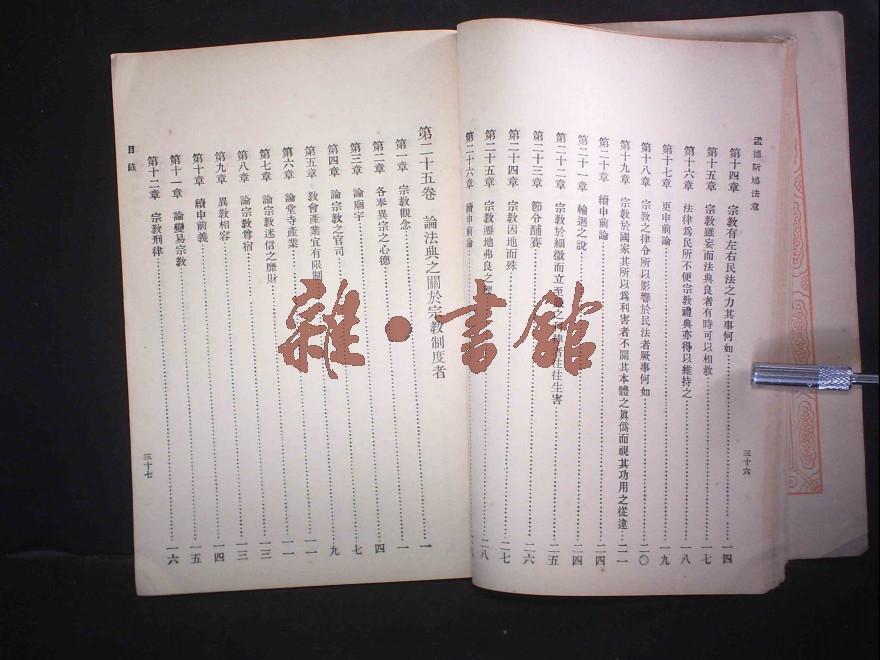 孟德斯鳩法意
第十四章 宗教有左右民法之力其事何如 一四
第十五章 宗教雖妄而法典良者有時可以相救 一七
第十六章 法律爲民所不便宗教禮典亦得以維持之 一八
第十七章 更申前論 一九
第十八章 宗教之律令所以影響於民法者厥事何如 二〇
第十九章 宗教於國家其所以爲利害者不關其本體之眞僞而視其功用之從違 二一
第二十章 續申前論 二四
第二十一章 輪迴之說 二四
第二十二章 宗教於細微而立至 之 往往生害 二五
第二十三章 節令酺賽 二六
第二十四章 宗教因地而殊 二七
第二十五章 宗教遷地弗良之 二八
第二十六章 續申前論
三十六
第二十五卷 論法典之關於宗教制度者 一
第一章 宗教觀念 一
第二章 各奉異宗之心德 四
第三章 論廟宇 七
第四章 論宗教之官司 九
第五章 教會產業宜有限制 一一
第六章 論堂寺產業 一一
第七章 論宗教迷信之靡財 一三
第八章 論宗教尊宿 一三
第九章 異教相容 一四
第十章 續申前義 一五
第十一章 論變易宗教
第十二章 宗教刑律 一六
目錄
三十七
雜·書館